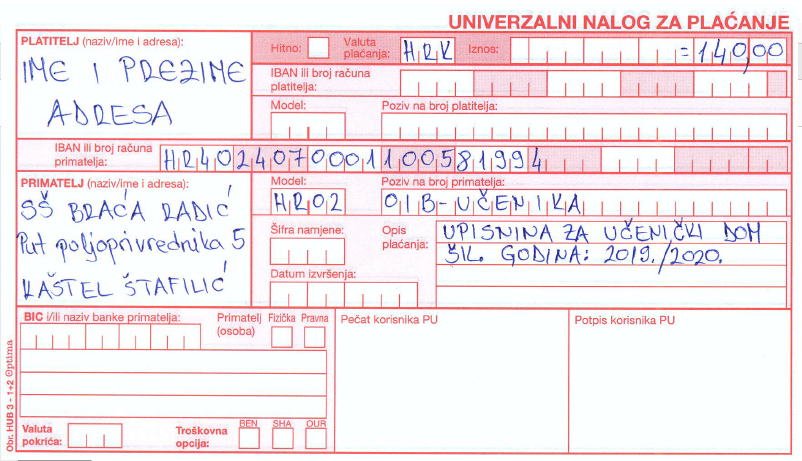 UNIVERZALNI NALOG ZA PLAĆANJE
PLATITELJ (naziv/ime i adresa):
IME I PREZIME
ADRESA
Hitno:
Valuta plaćanja: HRK
Iznos: =140,00
IBAN ili broj računa platitelja:
Model:
Poziv na broj platitelja:
IBAN ili broj računa primatelja: HR4024070001100581994
PRIMATELJ (naziv/ime i adresa):
SŠ BRAĆA RADIĆ
Put poljoprivrednika 5
KAŠTEL ŠTAFILIĆ
Model: HR02
Poziv na broj primatelja: OIB-UČENIKA
Šifra namjene:
Opis plaćanja: UPISNINA ZA UČENIČKI DOM
ŠK. GODINA: 2019./2020.
Datum izvršenja:
BIC i/ili naziv banke primatelja:
Primatelj (osoba)
Fizička
Pravna
Pečat korisnika PU
Potpis korisnika PU
Valuta pokrića:
Troškovna opcija:
BEN
SHA
OUR
Obr. HUB 3 - 1+2 Optima